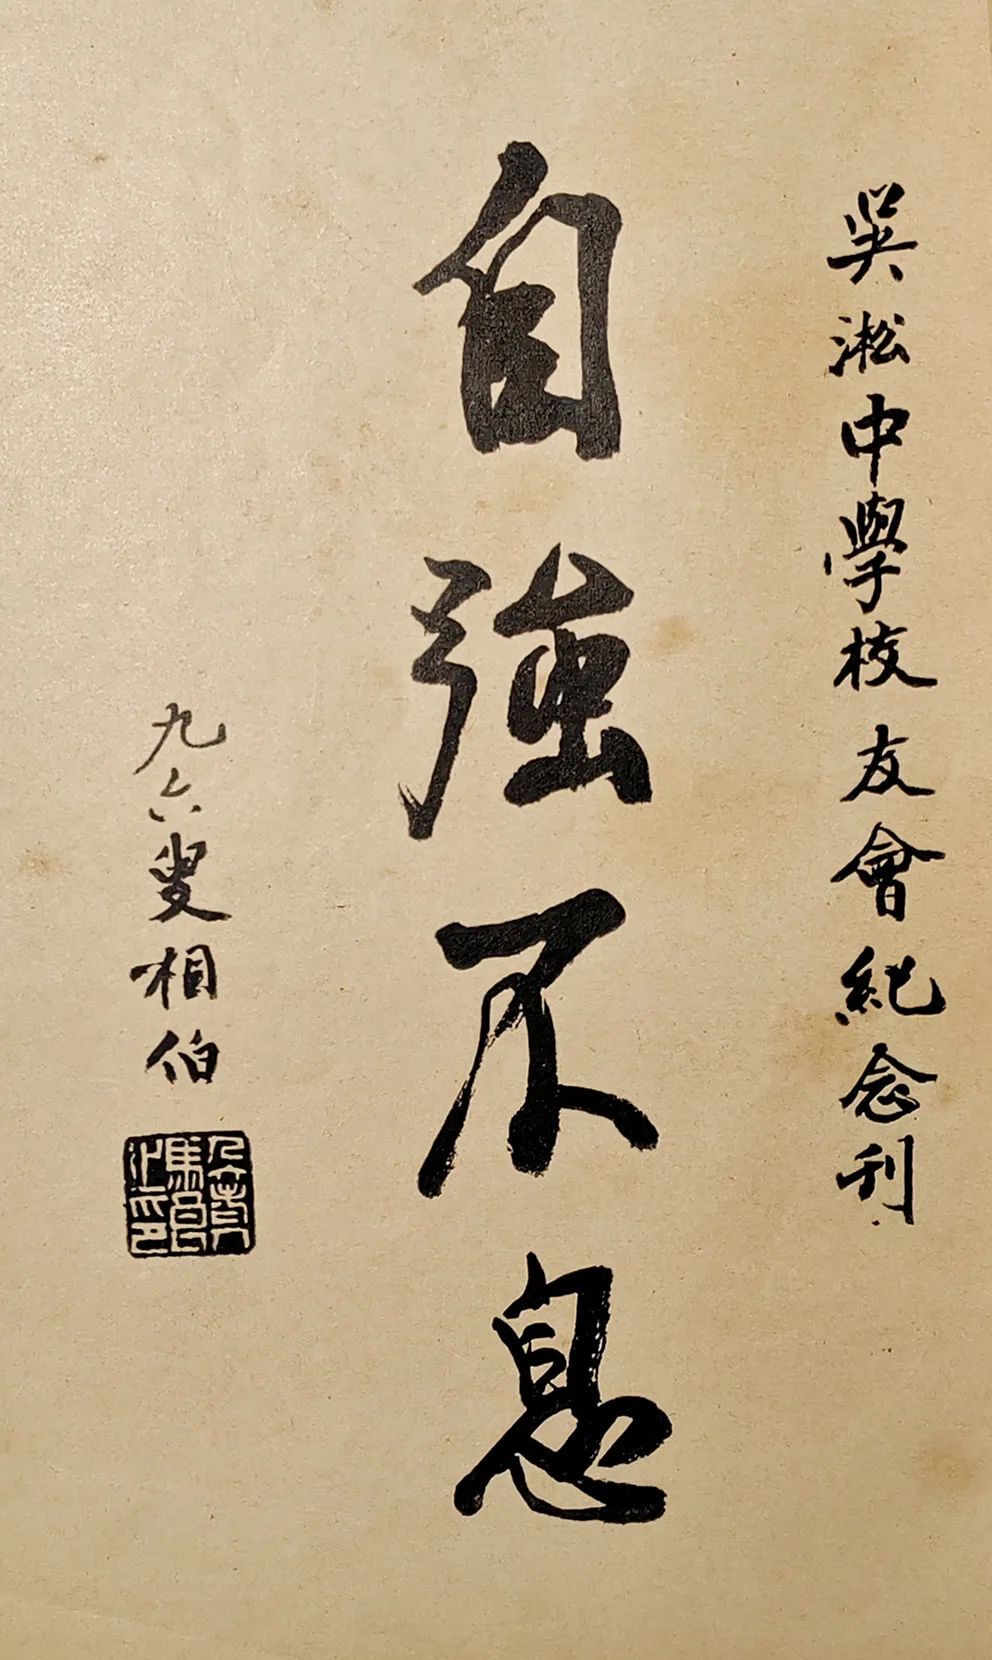 吳淞中學校友會紀念刊
自強不息
九六叟相伯